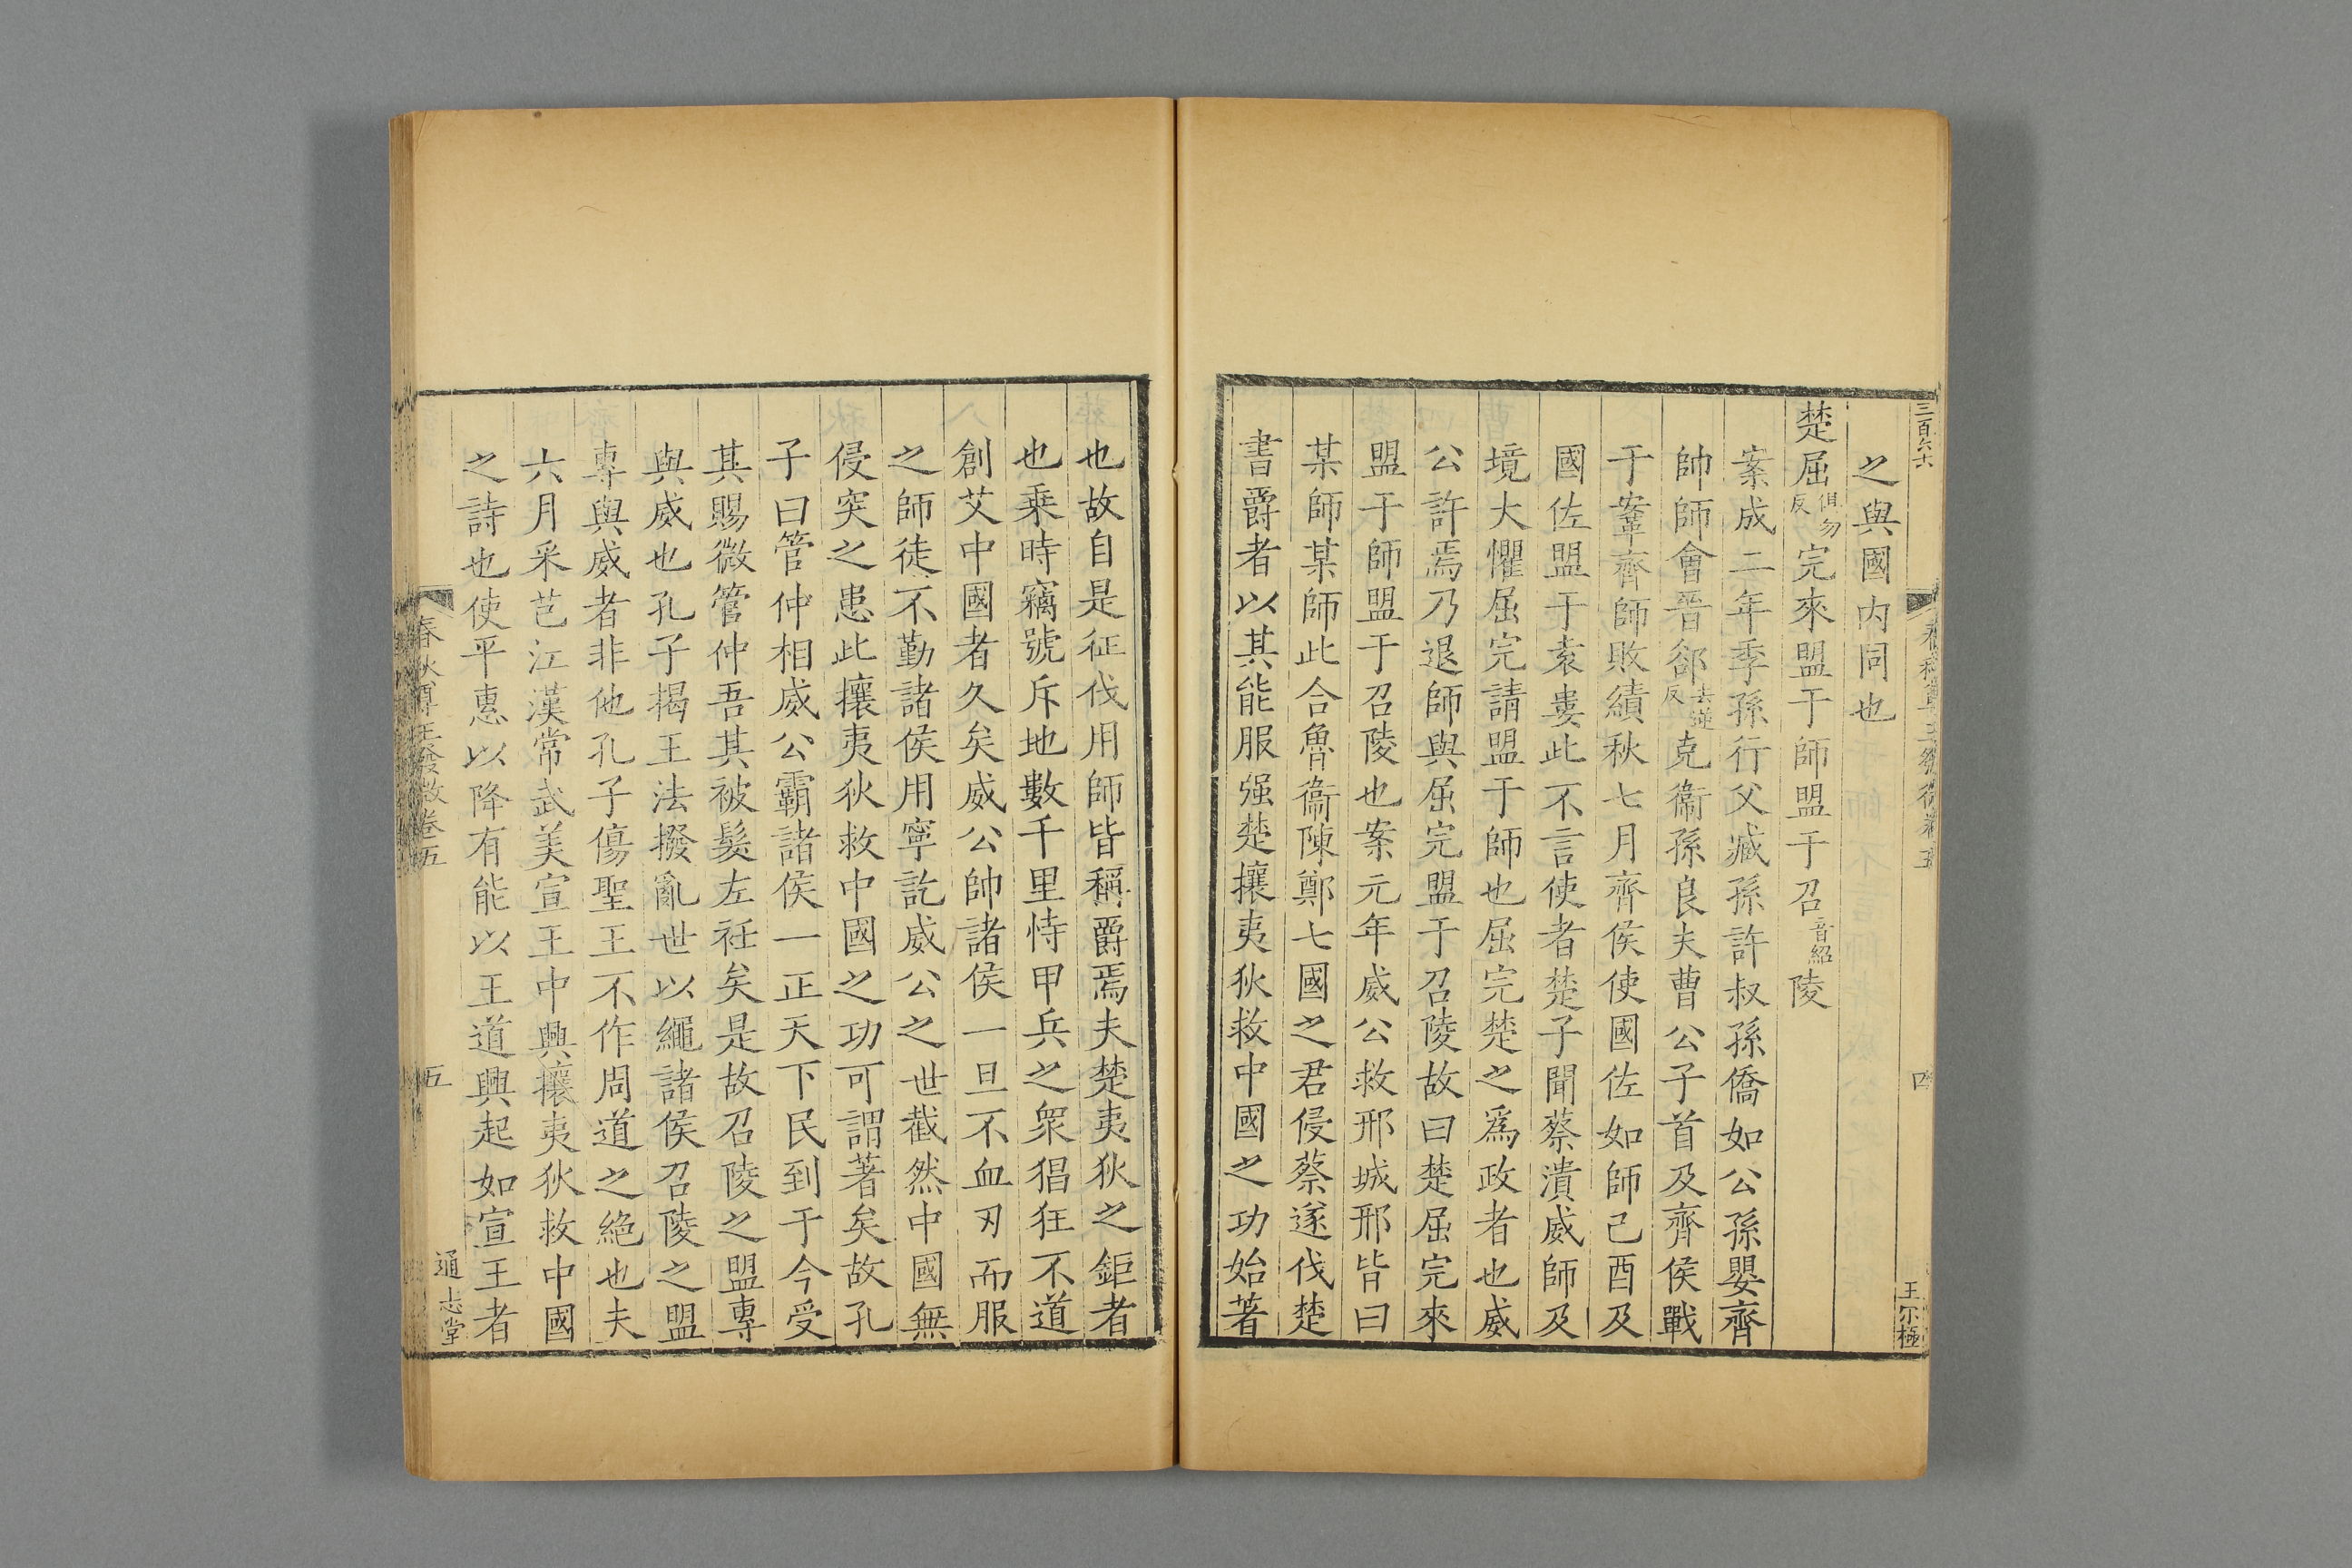 三百六六
春秋尊王發微卷五
四
王尔極
之與國内同也
楚屈俱勿反完來盟于師盟于召音紹陵
案成二年季孫行父臧孫許叔孫僑如公孫嬰齊
帥師會晉郤去逆反克衞孫良夫曹公子首及齊侯戰
于鞌齊師敗績秋七月齊侯使國佐如師己酉及
國佐盟于袁婁此不言使者楚子聞蔡潰威師及
境大懼屈完請盟于師也屈完楚之爲政者也威
公許焉乃退師與屈完盟于召陵故曰楚屈完來
盟于師盟于召陵也案元年威公救邢城邢皆曰
某師某師此合魯衞陳鄭七國之君侵蔡遂伐楚
書爵者以其能服强楚攘夷狄救中國之功始著
也故自是征伐用師皆稱爵焉夫楚夷狄之鉅者
也乘時竊號斥地數千里恃甲兵之衆猖狂不道
創艾中國者久矣威公帥諸侯一旦不血刃而服
之師徒不勤諸侯用寧訖威公之世截然中國無
侵突之患此攘夷狄救中國之功可謂著矣故孔
子曰管仲相威公霸諸侯一正天下民到于今受
其賜微管仲吾其被髮左衽矣是故召陵之盟專
與威也孔子揭王法撥亂世以繩諸侯召陵之盟
專與威者非他孔子傷聖王不作周道之絶也夫
六月采芑江漢常武美宣王中興攘夷狄救中國
之詩也使平惠以降有能以王道興起如宣王者
春秋尊王發微卷五
五
通志堂